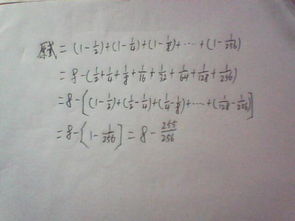 原式=(1-1/2)+(1-1/4)+(1-1/8)+⋯+(1-1/256)
=8-(1/2+1/4+1/8+1/16+1/32+1/64+1/128+1/256)
=8-[(1-1/2)+(1/2-1/4)+(1/4-1/8)+⋯+(1/128-1/256)]
=8-[1-1/256]=8-255/256